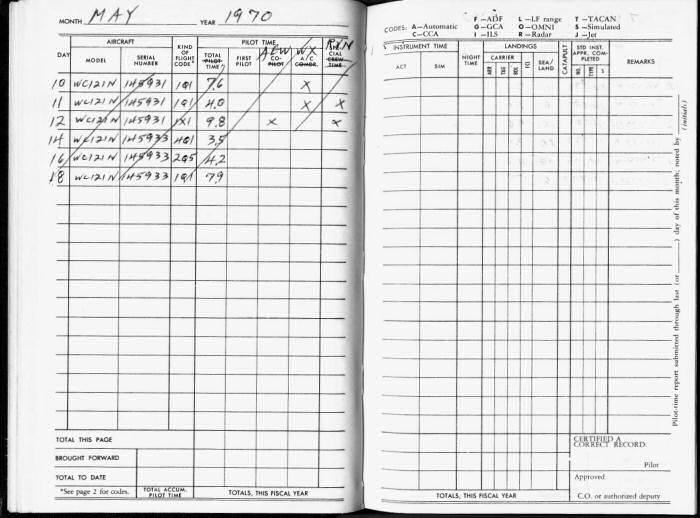 MONTH MAY YEAR 1970
AIRCRAFT
PILOT TIME
DAY
MODEL
SERIAL NUMBER
KIND OF FLIGHT CODE*
TOTAL PILOT TIME
FIRST PILOT
CO-PILOT
WX
A/C COMDR.
SPECIAL CREW TIME
10 WC121N 145931 1Q1 7.6 X
11 WC121N 145931 1Q1 4.0 X X
12 WC121N 145931 1X1 9.8 X X
14 WC121N 145933 4Q1 3.5
16 WC121N 145933 2Q5 4.2
18 WC121N 145933 1Q1 7.9
TOTAL THIS PAGE
BROUGHT FORWARD
TOTAL TO DATE
*See page 2 for codes.
TOTAL ACCUM. PILOT TIME
TOTALS, THIS FISCAL YEAR
CODES: A—Automatic
C—CCA
F—ADF
G—GCA
I—ILS
L—LF range
O—OMNI
R—Radar
T—TACAN
S—Simulated
J—Jet
INSTRUMENT TIME
ACT
SIM
NIGHT TIME
LANDINGS
CARRIER
ARR
T&G
BOL
SEA/LAND
CATAPULT
STD INST. APPR. COMPLETED
NO.
TYPE
REMARKS
Pilot-time report submitted through last (or ) day of this month; noted by (initials)
CERTIFIED A CORRECT RECORD:
Pilot
Approved
TOTALS, THIS FISCAL YEAR
C.O. or authorized deputy